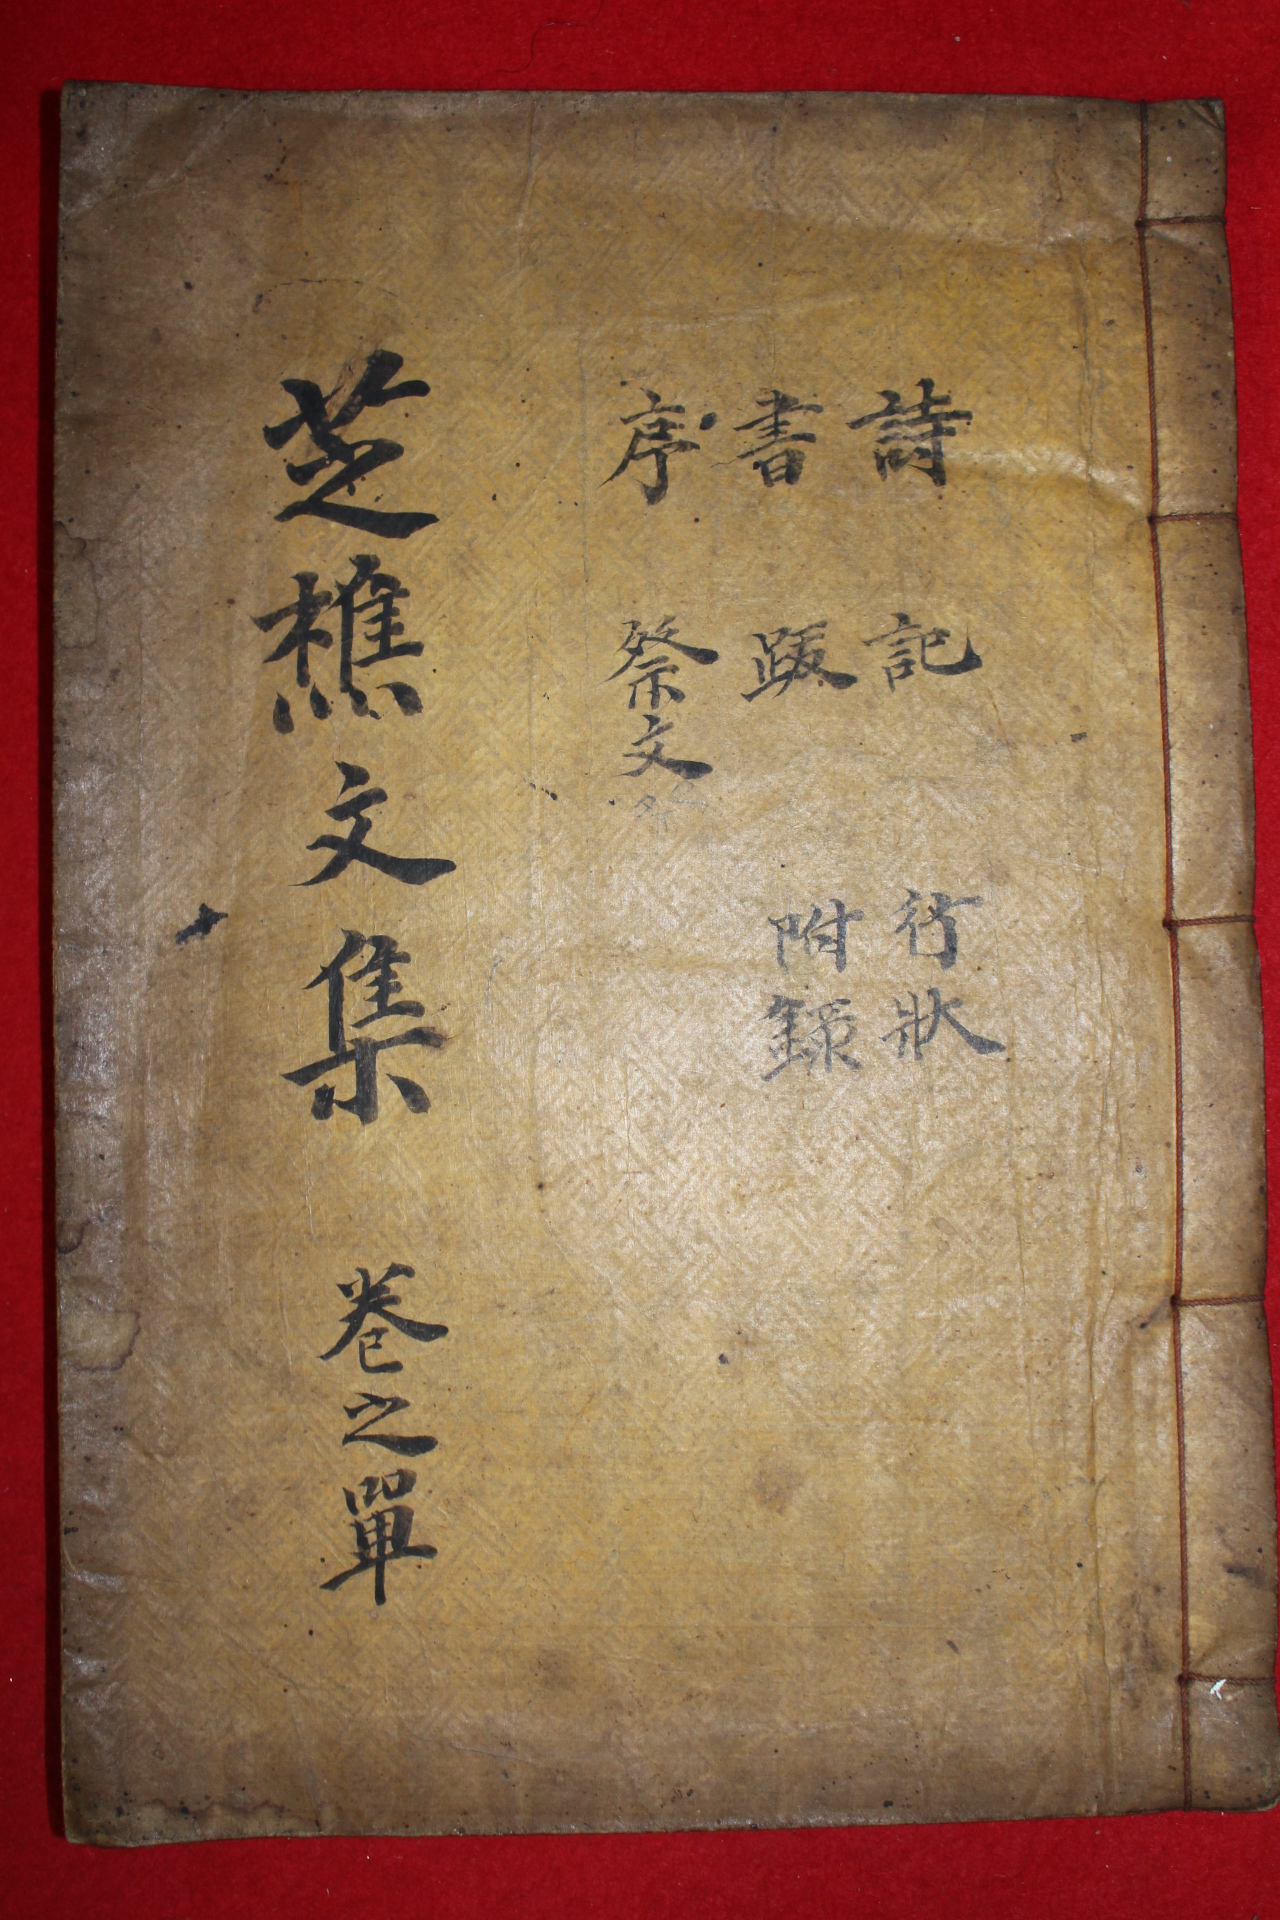 詩 書 序
記 跋 祭文
行狀 附錄
芝樵文集 卷之單